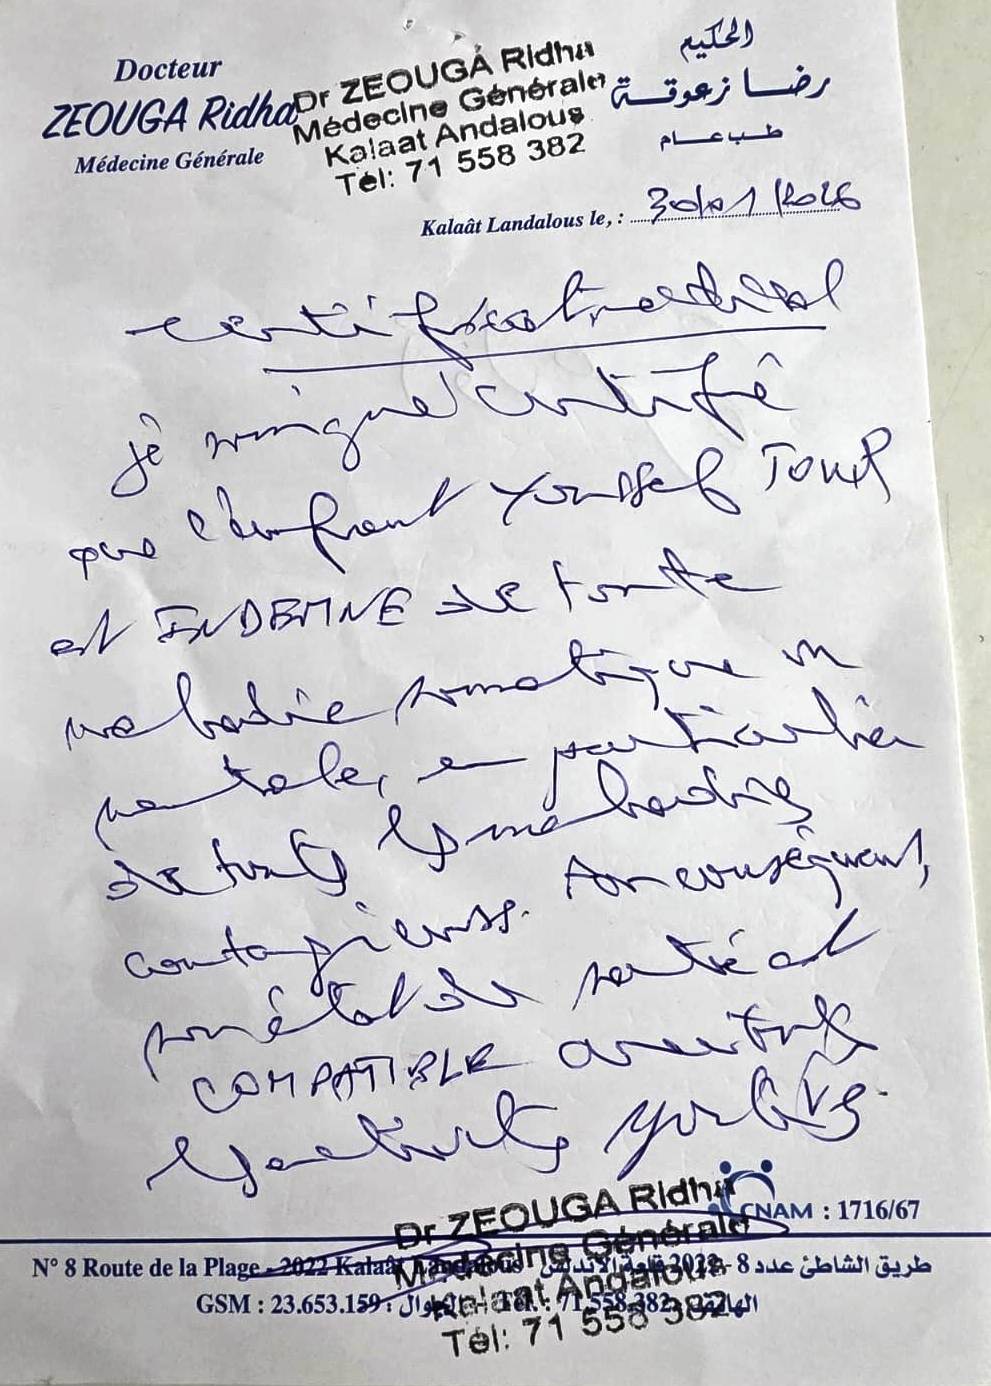 Docteur
ZEOUGA Ridha
Médecine Générale
Dr ZEOUGA Ridha
Médecine Générale
Kalaat Andalous
Tél: 71 558 382
الحكيم
رضا زعوقة
طب عام
Kalaât Landalous le, : 30/01/2026
certificat médical
je soigné certifié
que l'enfant Youssef
est INDEMNE de toute
maladie somatique ou
mentale, en particulier
de toutes les maladies
contagieuses. Par conséquent,
son état de santé est
COMPATIBLE avec toutes
les activités
Dr ZEOUGA Ridha
Médecine Générale
Kalaat Andalous
Tél: 71 558 382
CNAM : 1716/67
N° 8 Route de la Plage - 2022 Kalaât Landalous طريق الشاطئ عدد 8 - 2022 قلعة الأندلس
GSM : 23.653.159 : الجوال - Tél. : 71.558.382 : الهاتف